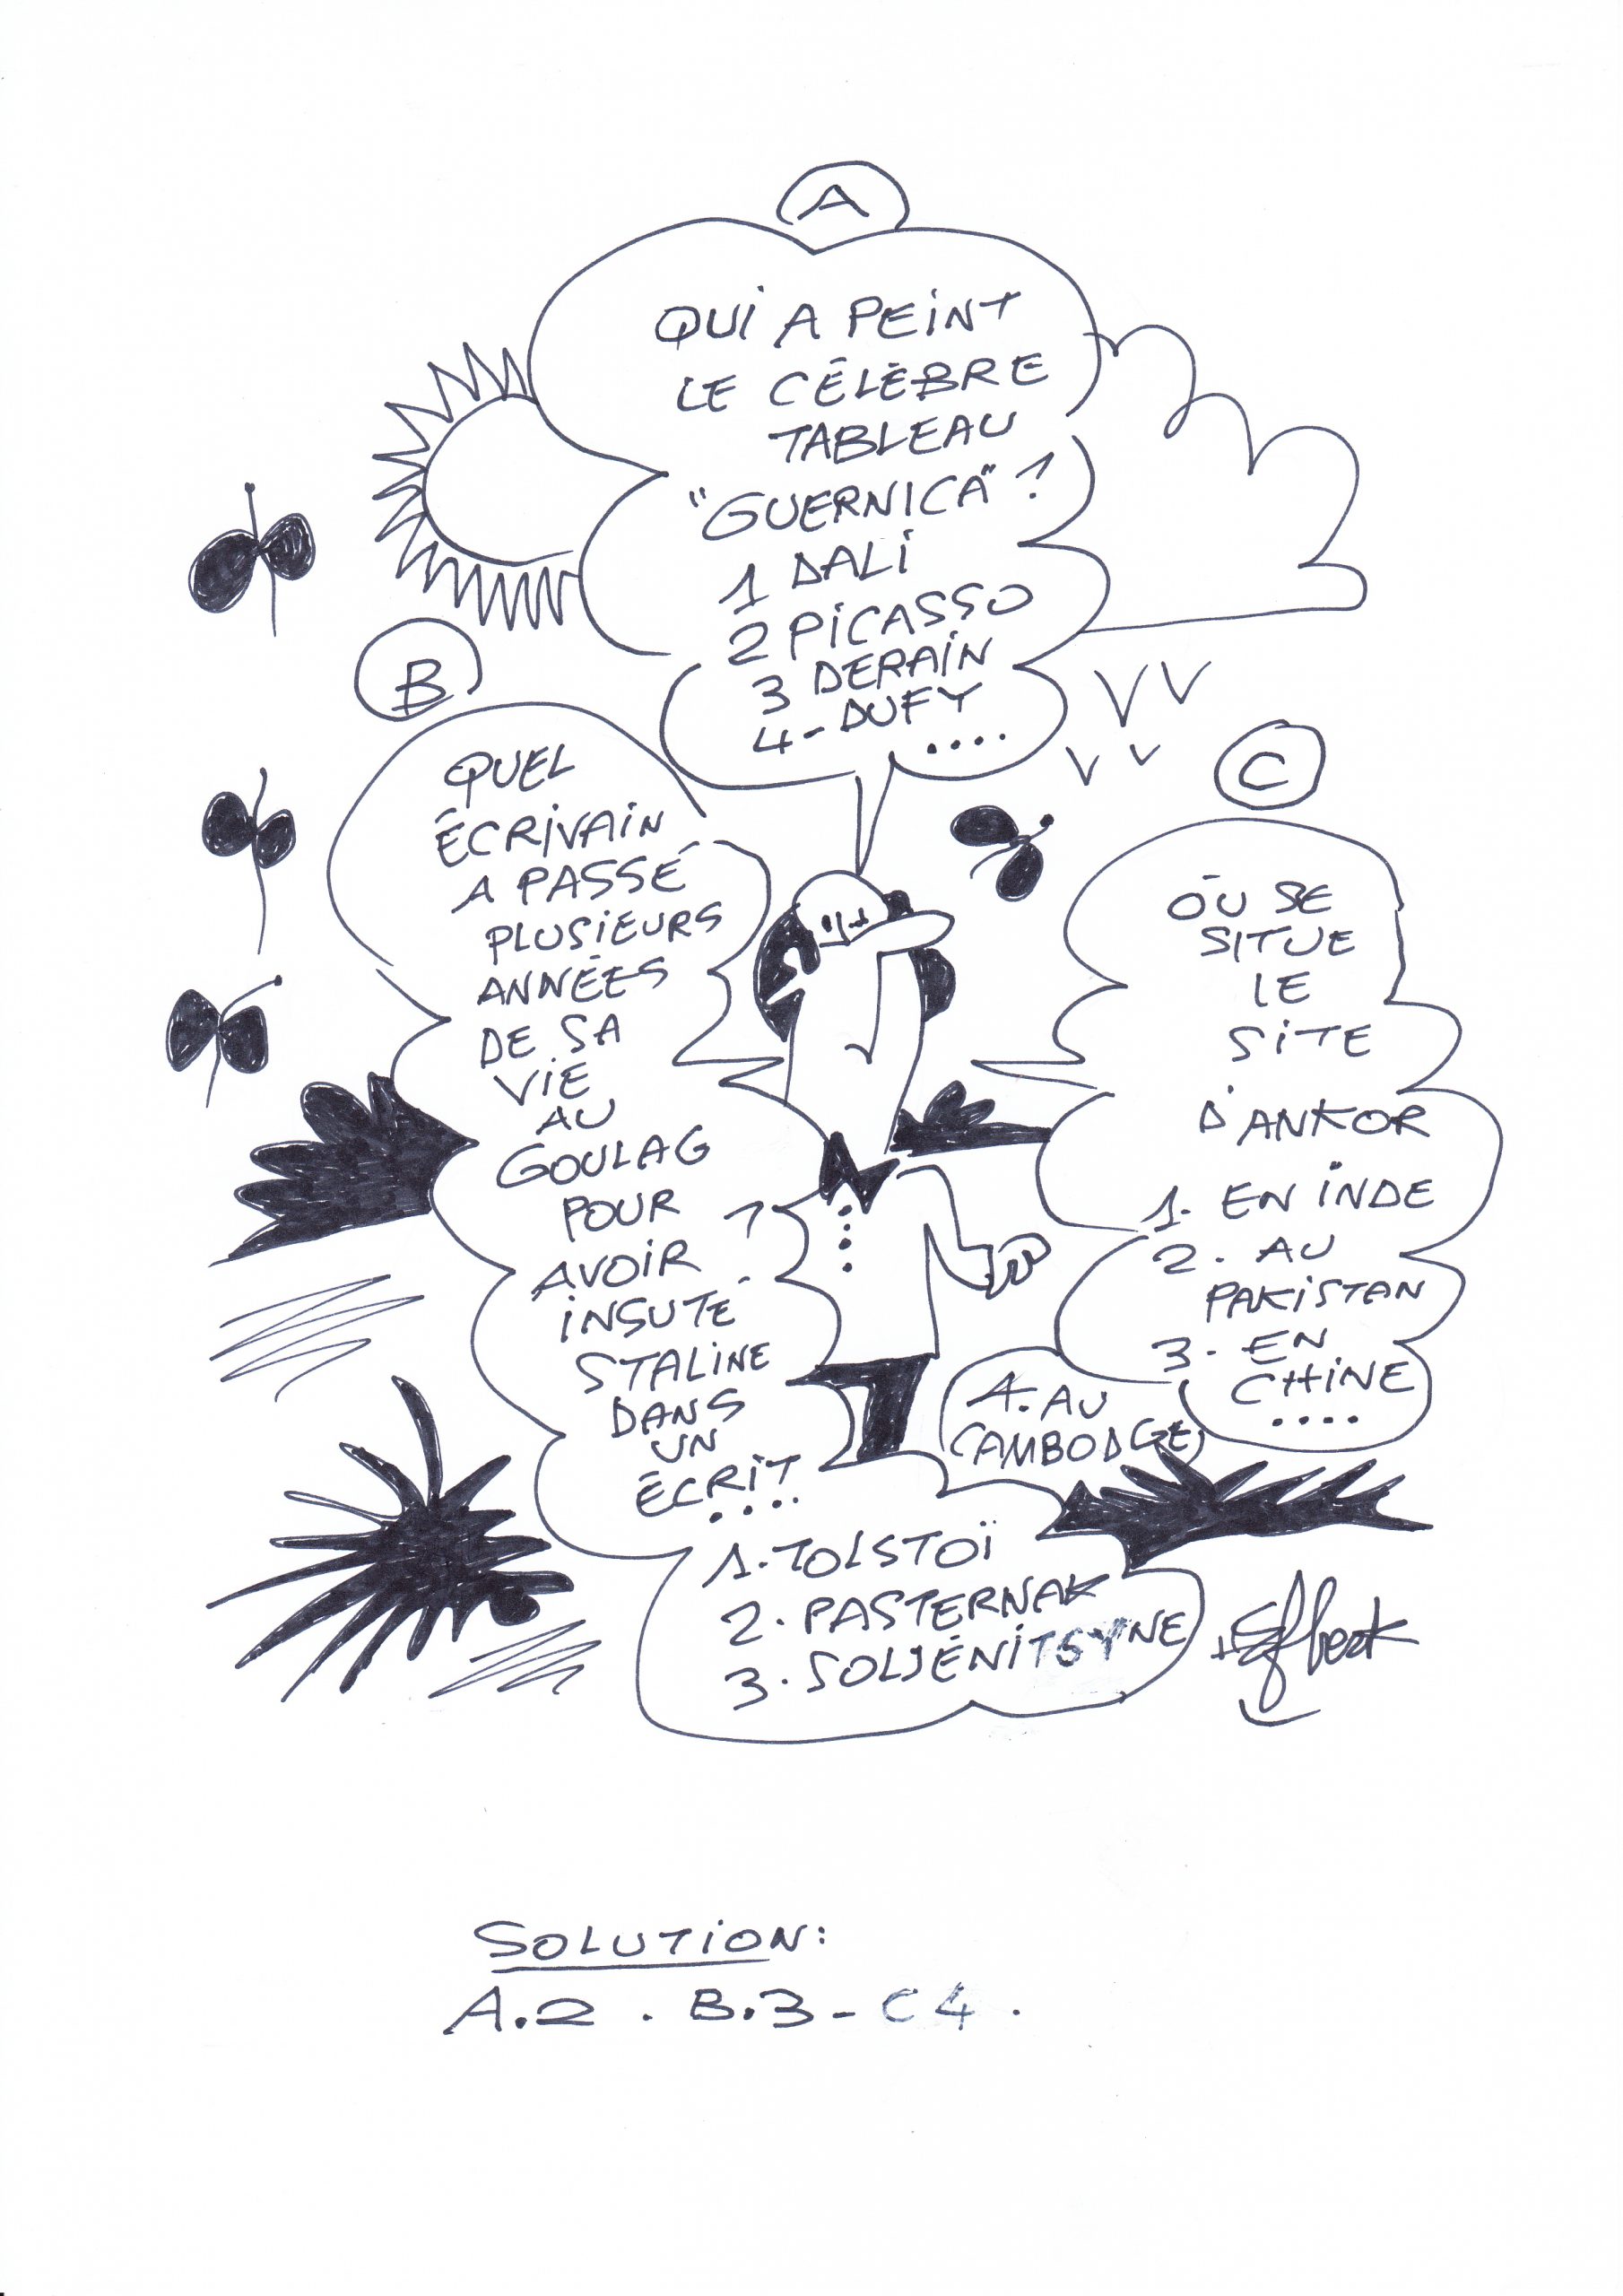 A
QUI A PEINT
LE CÉLÈBRE
TABLEAU
"GUERNICA" ?
1 DALI
2 PICASSO
3 DERAIN
4-DUFY
....
B
QUEL
ÉCRIVAIN
A PASSÉ
PLUSIEURS
ANNÉES
DE SA
VIE
AU
GOULAG
POUR
AVOIR ?
INSUTÉ
STALINE
DANS
UN
ÉCRIT
....
1.TOLSTOÏ
2.PASTERNAK
3.SOLJÉNITSYNE
C
OÙ SE
SITUE
LE
SITE
D'ANKOR
1. EN INDE
2. AU
PAKISTAN
3. EN
CHINE
....
4. AU
CAMBODGE
SOLUTION:
A.2 . B.3 - C 4 .